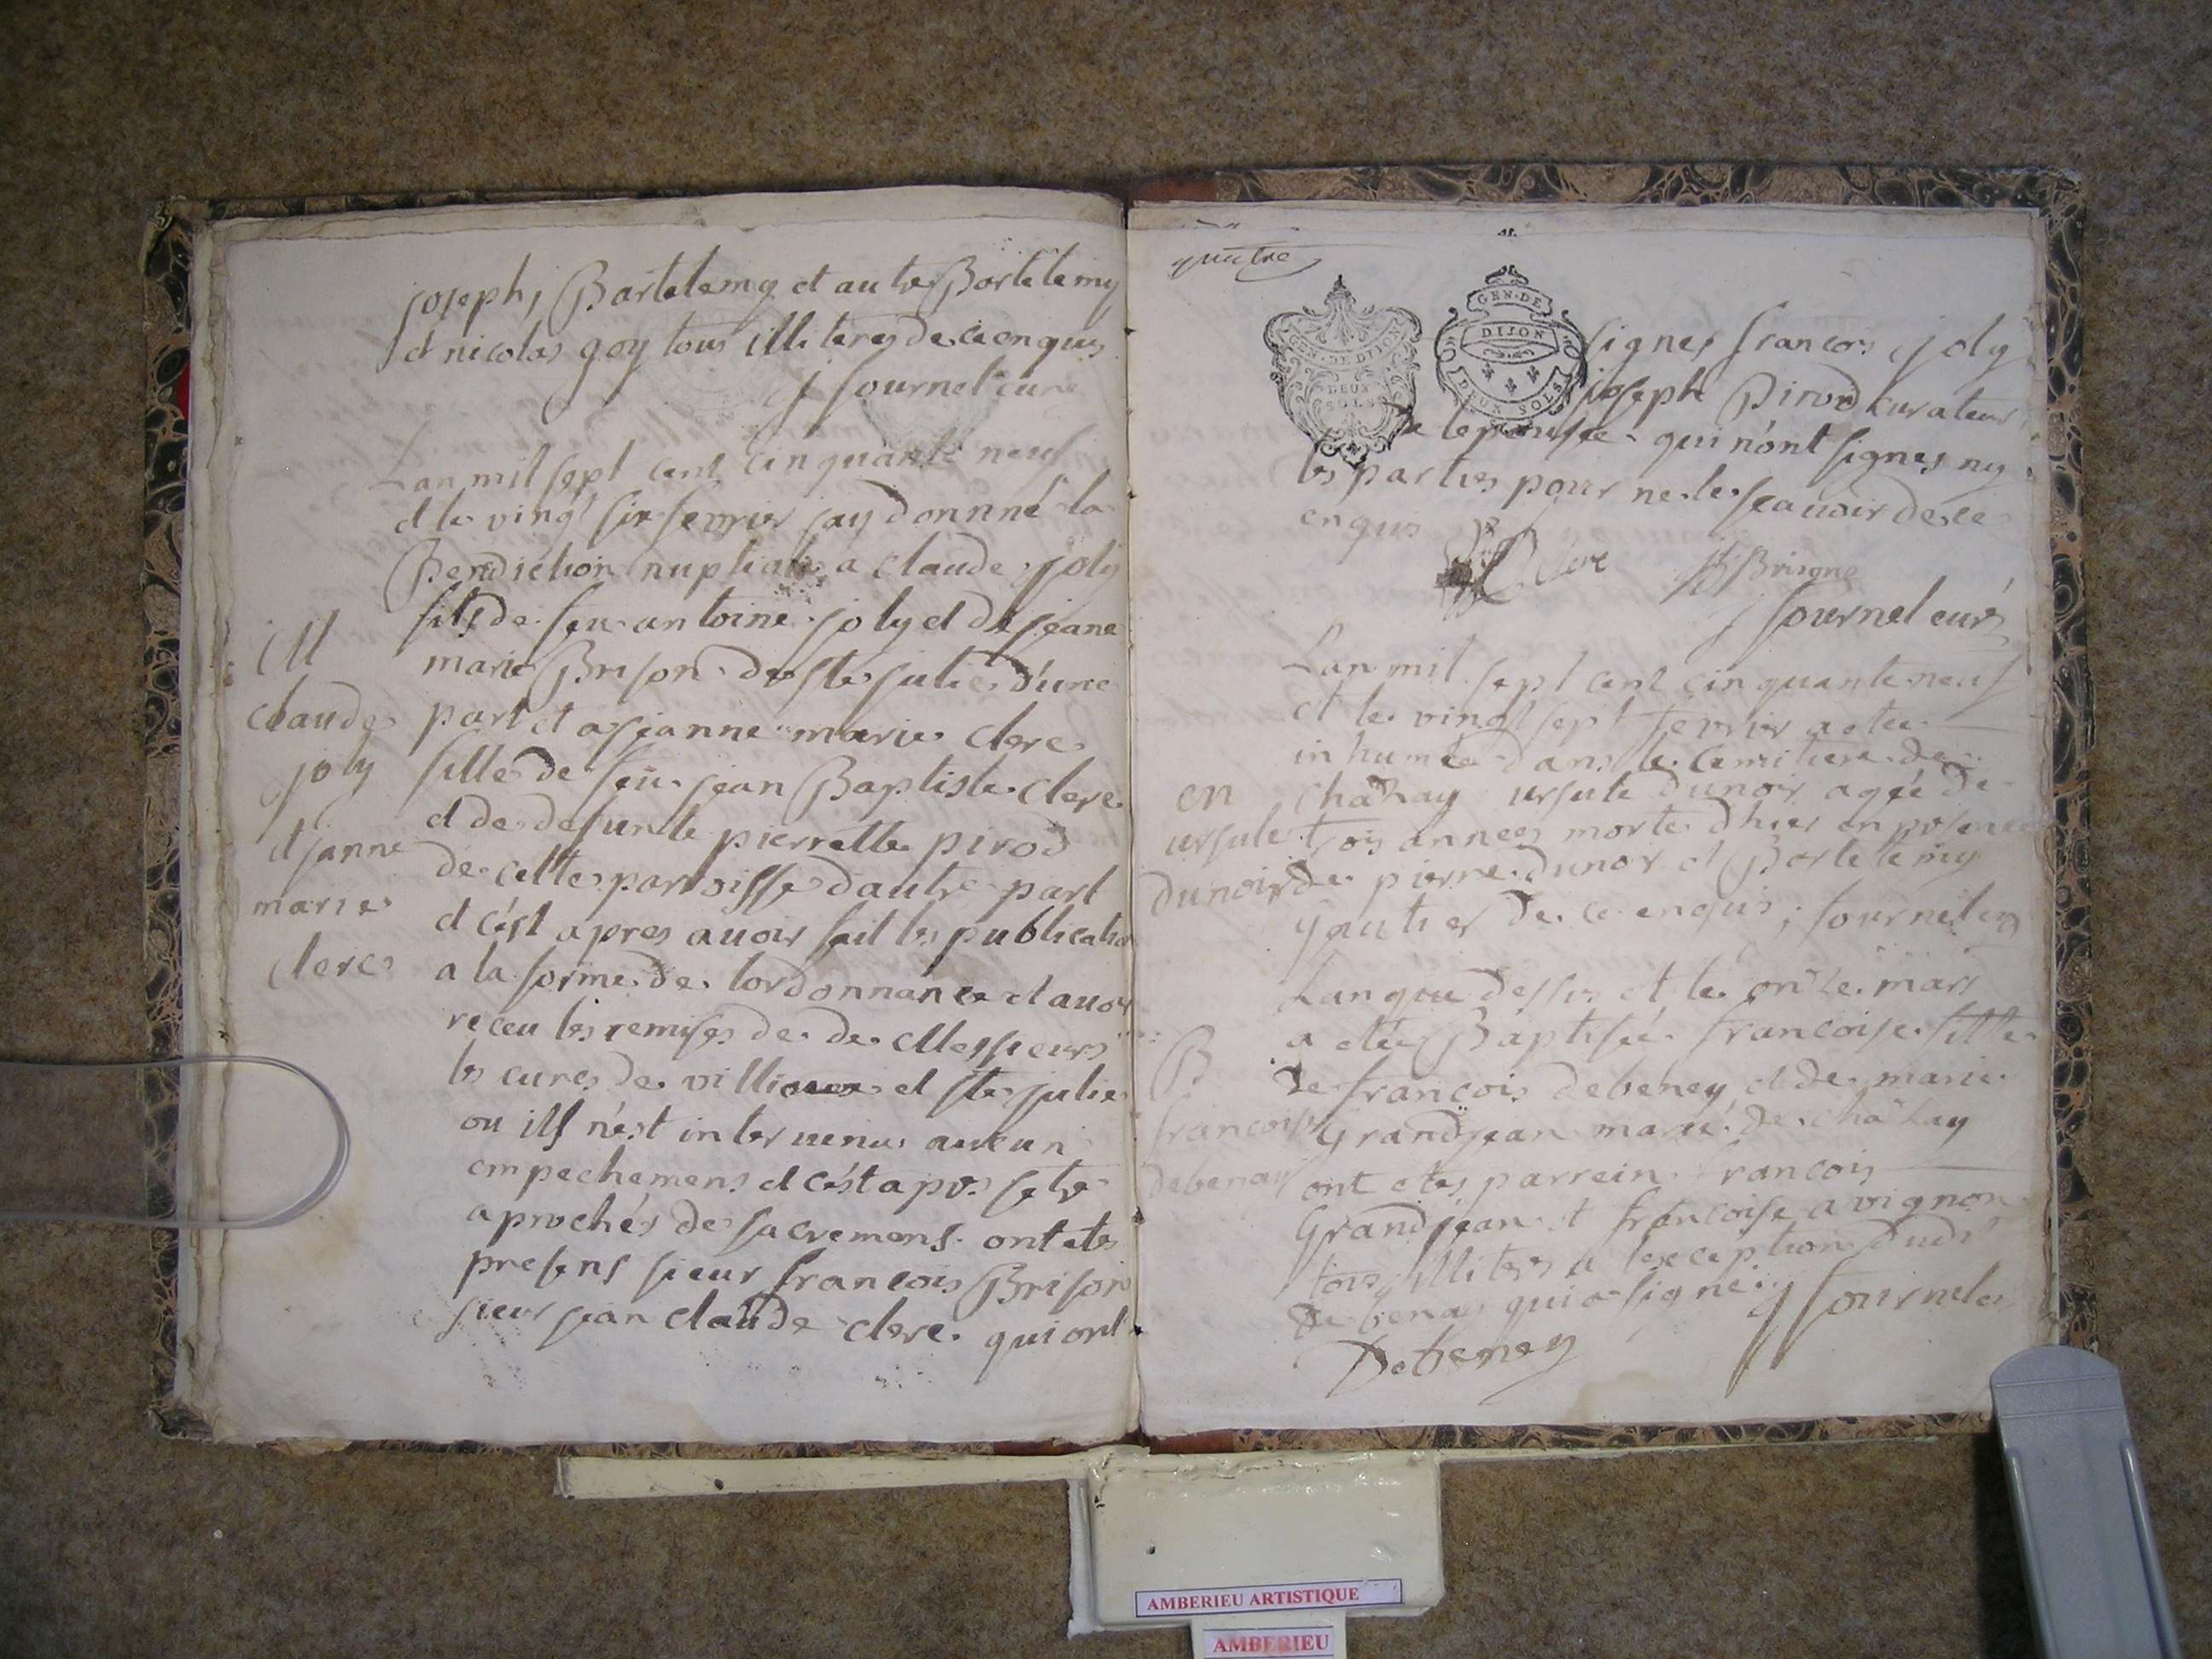 joseph, Bartelemy et autre Bartelemy
et nicolas goy tous illiteres de ce enquis
J fournel curé
Lan mil sept cent cinquante neuf
et le vingt six fevrier jay donnné la
Benediction nuptiale a claude joly
fils de feu antoine joly et de jeane
marie Brison de ste julie d'une
part et a jeanne marie clerc
fille de feu jean Baptiste clerc
et de defunte pierrette pirod
de cette parroisse dautre part
et cést apres avoir fait les publication
a la forme de lordonnance et avoir
receu les remises de de Messieurs
les curés de villieux et ste julie
ou ils n'est intervenus aucun
empechemens et cést apres setre
aprochés de sacremens ont etes
presens sieur francois Brison
sieur jean claude clerc qui ont
M
claude
joly
et janne
marie
clerc
quatre
GEN·DE·DIJON
DEUX
SOLS
GEN·DE
DIJON
DEUX SOLS
signes francois joly
joseph Pirod curateur
de lepousée qui n'ont signes ny
les parties pour ne le sçavoir de ce
enquis
Clerc Brisone
J fournel curé
Lan mil sept cent cinquante neuf
et le vingt sept fevrier a etée
inhumée dans le cemitiere de
chaZay ursule dunoir agée de
trois annees morte dhier en presence
de pierre dunoir et Bartelemy
gautier de ce enquis, fournel
en
ursule
dunoir
Lan que dessus et le onZe mars
a etée Baptisée francoise fille
de françois debeney et de marie
Grandjean marié de chaZay
ont etes parrein francois
Grandjean et francoise avignon
tous illiteres a lexception dudt
debenay qui a signé J fournel
Debeney
B
francoise
debenay
AMBERIEU ARTISTIQUE
AMBERIEU